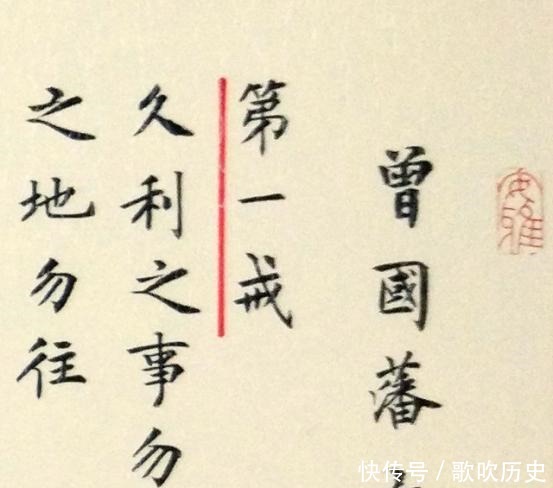 曾國藩
第一戒
久利之事勿
之地勿往
快传号/歌吹历史